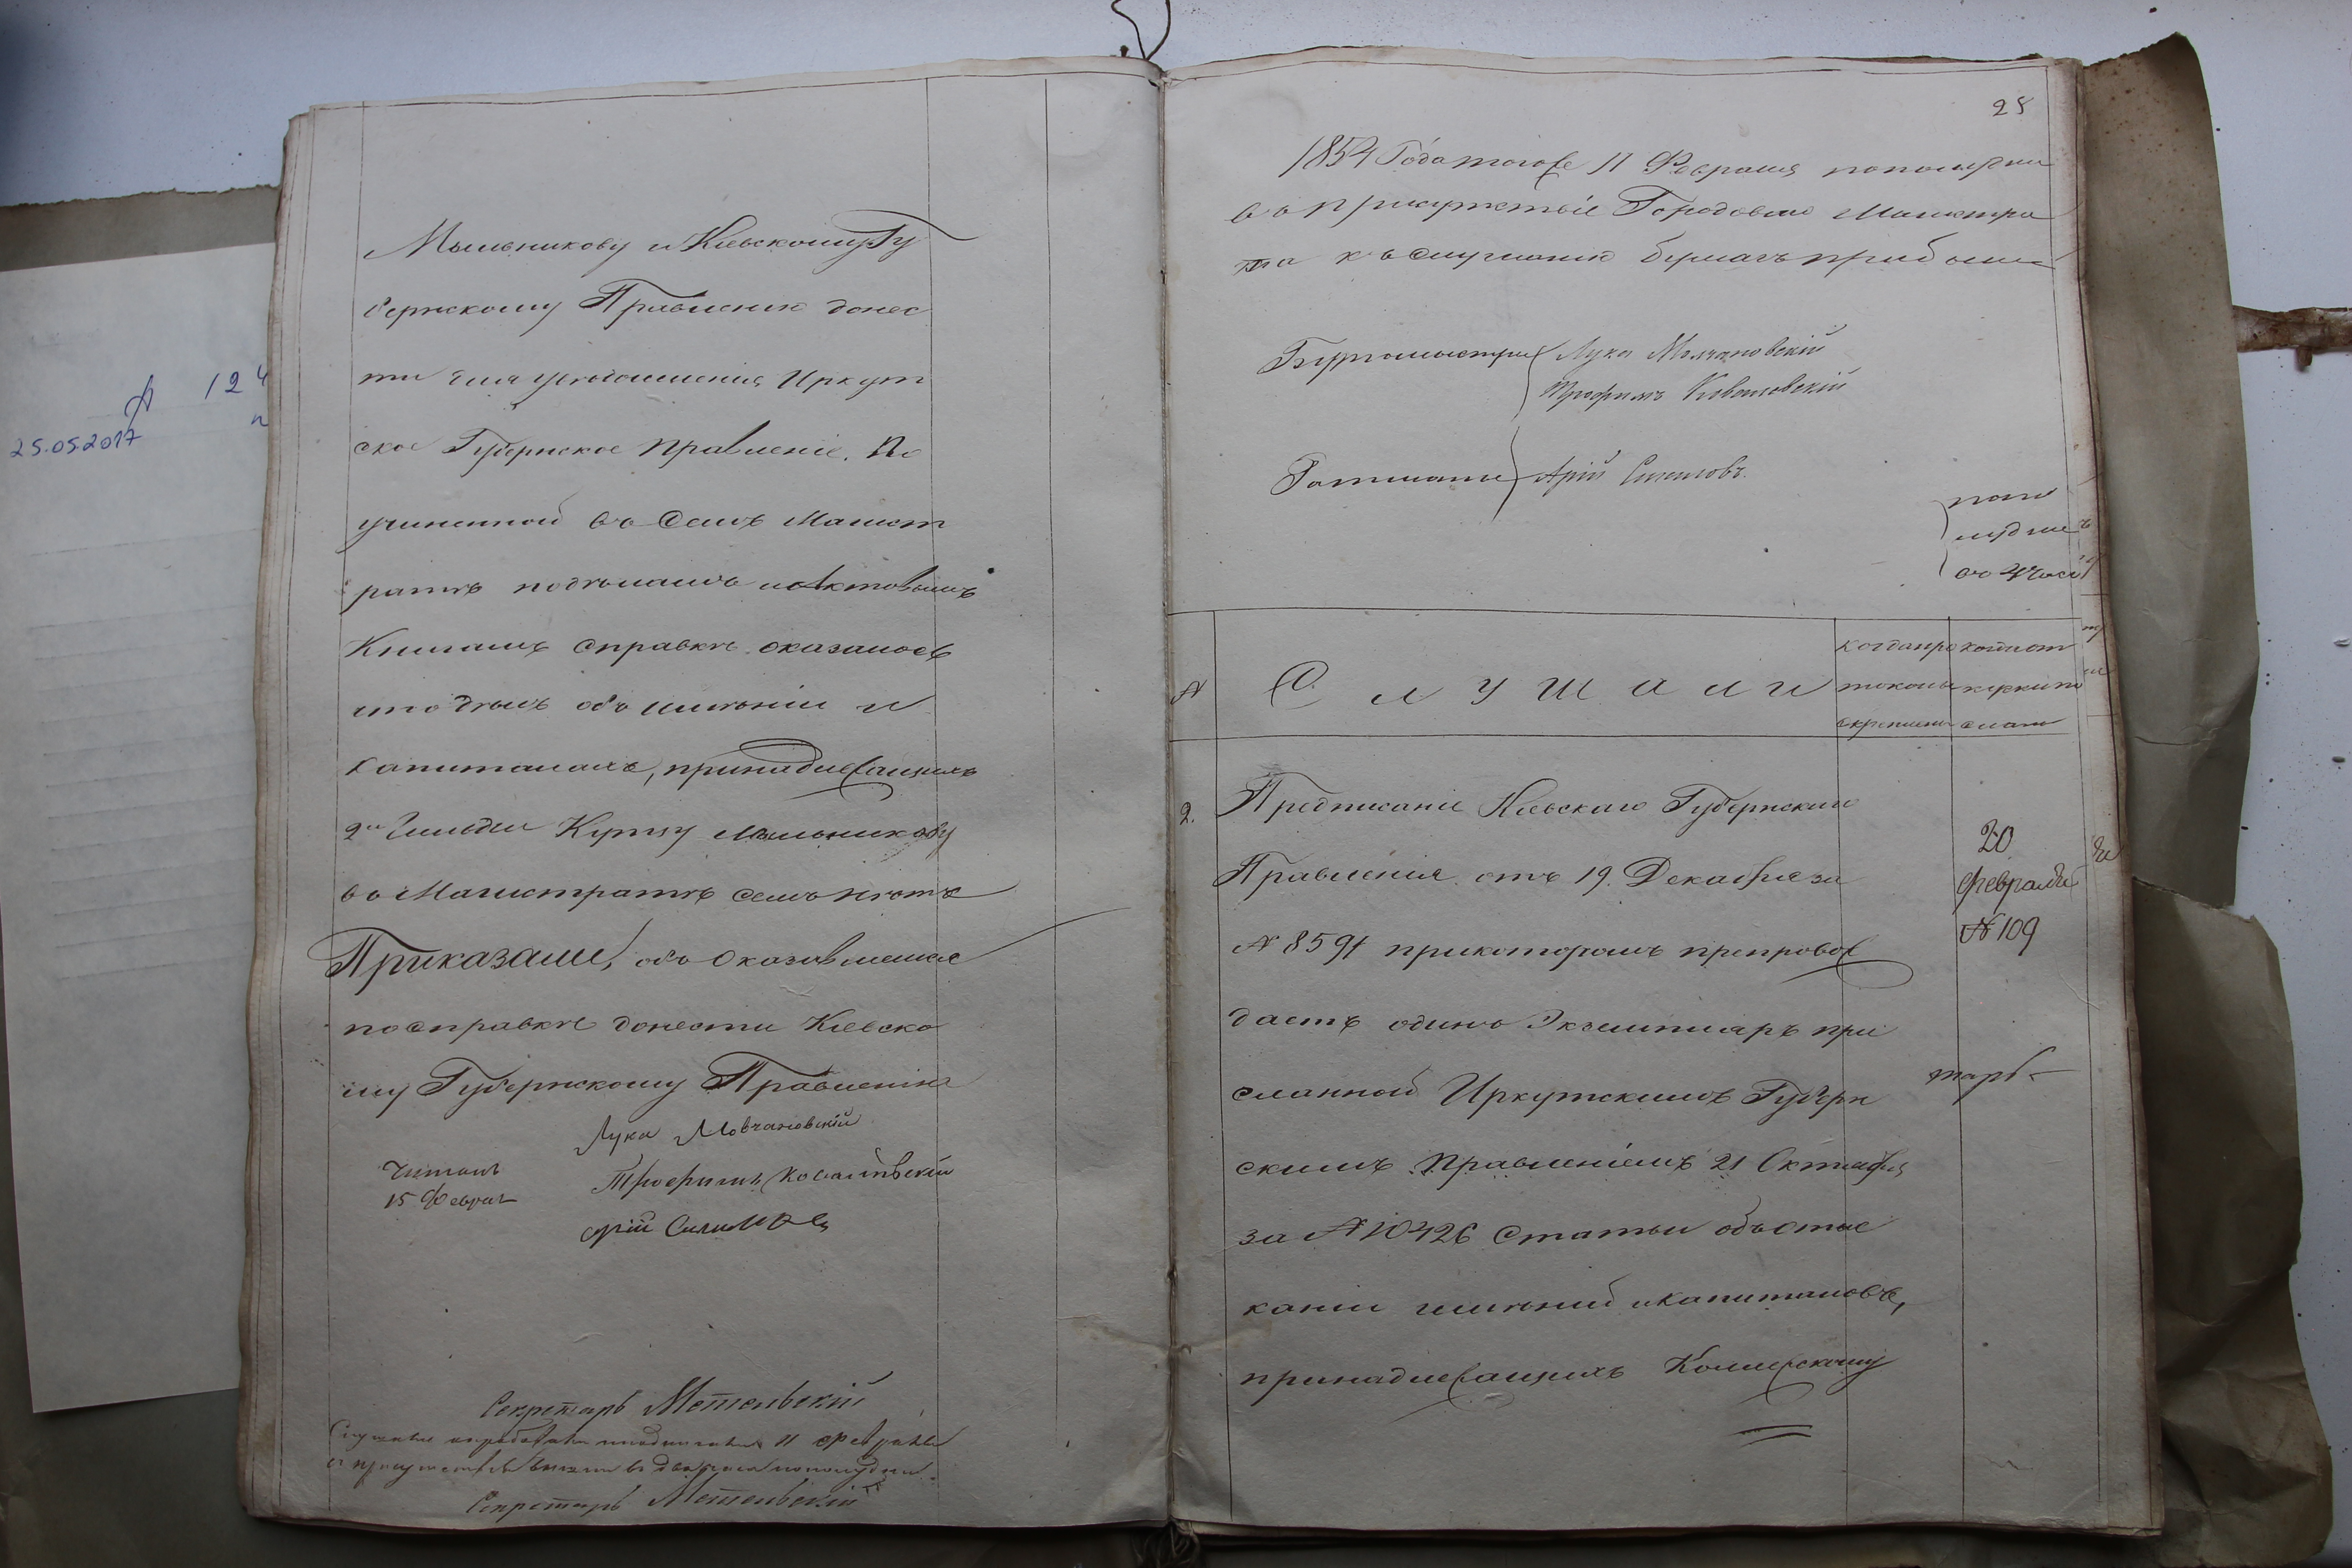 25.05.2017
124
Мыльникову и Кіевскому Гу
бернскому Правленію донес
ти для увѣдомленія Иркут
ское Губернское Правленіе. По
учиненной въ семъ Магист
ратѣ подѣламъ иактовымъ
Книгамъ справкѣ оказалось
что дѣлъ объ имѣніи и
капиталахъ, принадлежащихъ
2й Гильдіи Купцу Мыльникову
въ Магистратѣ семъ нѣтъ
Приказали, объ оказавшемся
посправкѣ донести Кіевско
му Губернскому Правленію
Лука Мовчановскій
Читалъ
15 Феврал
Трофимъ Ковалевскій
Арій
Секретарь Метельскій
11 февраля
в два часа пополудни
Секретарь Метельскій
25
1854 Года тогоже 11 Февраля пополудни
въ присутствіе Городоваго Магистра
та къ слушанію бумагъ прибыли
Бургомистры Лука Молчановскій
Трофимъ Ковалевскій
Ратманы Арій
попо
лудне
во 4 часа
№
Слушали
когда про
токолы
скреплены
2. Предписаніе Кіевскаго Губернскаго
Правленія отъ 19. Декабря за
№ 8591 прикоторомъ препровож
даетъ одинъ Экземпляръ при
сланной Иркутскимъ Губерн
скимъ Правленіемъ 21 Октября
за № 10426 Статьи объ оты
сканіи имѣній икапиталовъ,
принадлежащихъ Коммерскому
20
февраля
№ 109